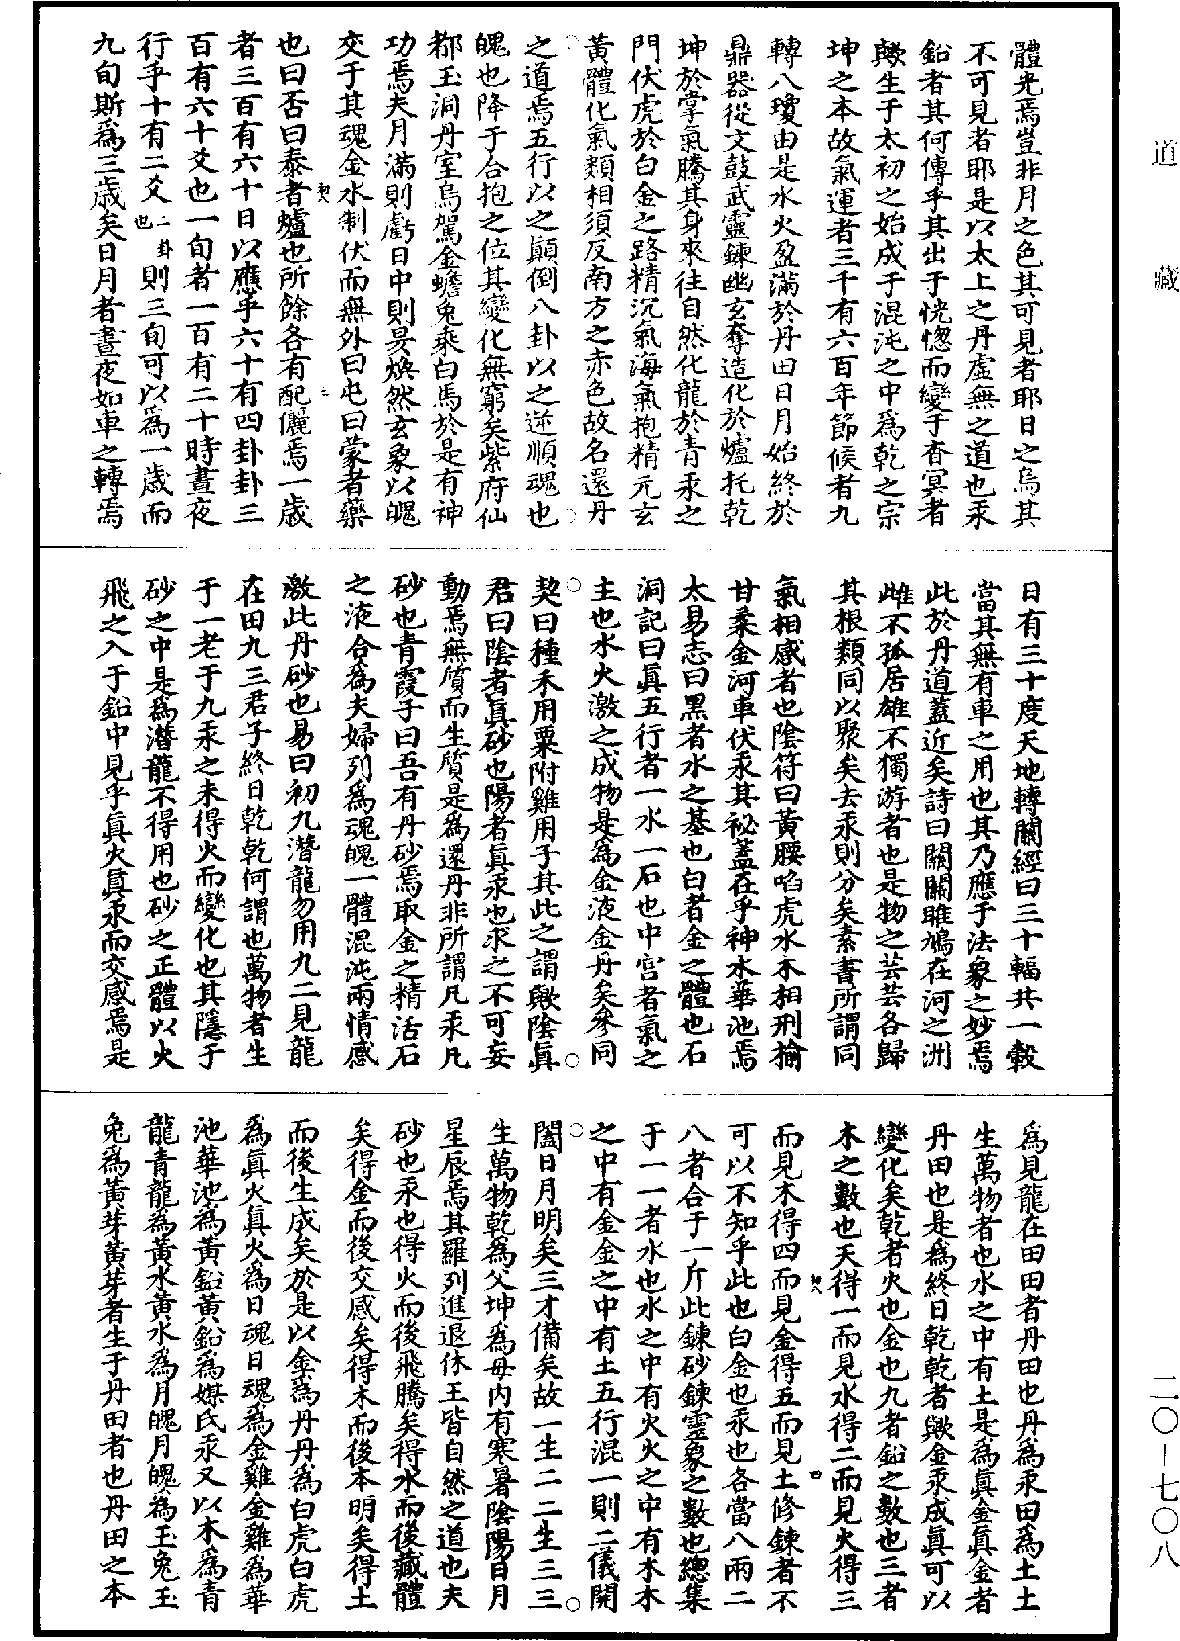 體光焉豈非月之色其可見者耶日之烏其
不可見者耶是以太上之丹虛無之道也汞
鉛者其何傳乎其出于恍惚而變于杳冥者
歟生于太初之始成于混沌之中爲乾之宗
坤之本故氣運者三千有六百年節候者九
轉八瓊由是水火盈滿於丹田日月始終於
鼎器從文鼓武靈鍊幽玄奪造化於爐托乾
坤於掌氣騰其身來往自然化龍於青汞之
門伏虎於白金之路精沉氣海氣抱精元玄
黃體化氣類相須反南方之赤色故名還丹
之道焉五行以之顛倒八卦以之逆順魂也
魄也降于合抱之位其變化無窮矣紫府仙
都玉洞丹室烏駕金蟾兔乘白馬於是有神
功焉夫月滿則虧日中則昃煥然玄象以魄
交于其魂金水制伏而無外曰屯曰蒙者藥
也曰否曰泰者爐也所餘各有配儷焉一歲
者三百有六十日以應乎六十有四卦卦三
百有六十爻也一旬者一百有二十時晝夜
行乎十有二爻二卦也則三旬可以爲一歲而
九旬斯爲三歲矣日月者晝夜如車之轉焉
日有三十度天地轉關經曰三十輻共一轂
當其無有車之用也其乃應乎法象之妙焉
此於丹道蓋近矣詩曰關關雎鳩在河之洲
雌不孤居雄不獨游者也是物之芸芸各歸
其根類同以聚矣去汞則分矣素書所謂同
氣相感者也陰符曰黃腰啗虎水木相刑揄
甘柔金河車伏汞其祕蓋在乎神水華池焉
太易志曰黑者水之基也白者金之體也石
洞記曰眞五行者一水一石也中宮者氣之
主也水火激之成物是爲金液金丹矣參同
契曰種禾用粟附雞用子其此之謂歟陰眞
君曰陰者眞砂也陽者眞汞也求之不可妄
動焉無質而生質是爲還丹非所謂凡汞凡
砂也青霞子曰吾有丹砂焉取金之精活石
之液合爲夫婦列爲魂魄一體混沌兩情感
激此丹砂也易曰初九潛龍勿用九二見龍
在田九三君子終日乾乾何謂也萬物者生
于一老于九汞之未得火而變化也其隱于
砂之中是爲潛龍不得用也砂之正體以火
飛之入于鉛中見乎眞火眞汞而交感焉是
爲見龍在田田者丹田也丹爲汞田爲土土
生萬物者也水之中有土是爲眞金眞金者
丹田也是爲終日乾乾者歟金汞成眞可以
變化矣乾者火也金也九者鉛之數也三者
木之數也天得一而見水得二而見火得三
而見木得四而見金得五而見土修鍊者不
可以不知乎此也白金也汞也各當八兩二
八者合于一斤此鍊砂鍊靈象之數也總集
于一一者水也水之中有火火之中有木木
之中有金金之中有土五行混一則二儀開
闔日月明矣三才備矣故一生二二生三三
生萬物乾爲父坤爲母內有寒暑陰陽日月
星辰焉其羅列進退休王皆自然之道也夫
砂也汞也得火而後飛騰矣得水而後藏體
矣得金而後交感矣得木而後本明矣得土
而後生成矣於是以金爲丹丹爲白虎白虎
爲眞火眞火爲日魂日魂爲金雞金雞爲華
池華池爲黃鉛黃鉛爲媒氏汞又以木爲青
龍青龍爲黃水黃水爲月魄月魄爲玉兔玉
兔爲黃芽黃芽者生于丹田者也丹田之本
道藏
二〇—七〇八